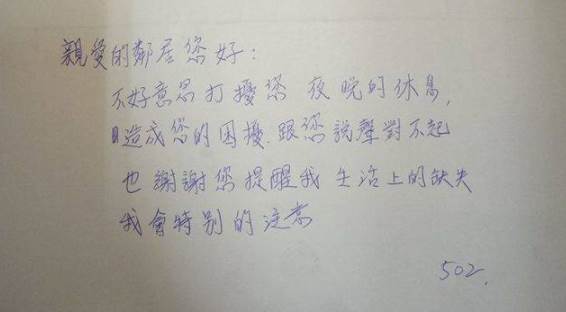 親愛的鄰居您好：
不好意思打擾您 夜晚的休息，
造成您的困擾.跟您說聲對不起
也謝謝您提醒我 生活上的缺失
我會特別的注意
502.